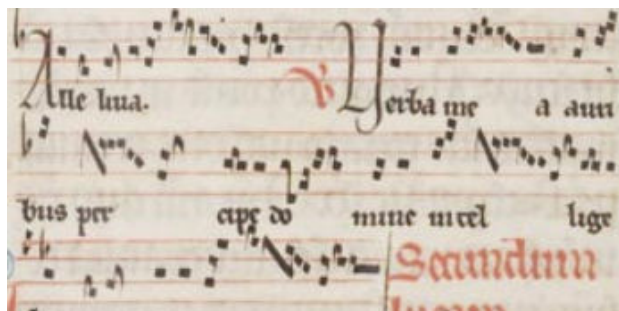 Alle luia. V Verba me a auri
bus per cipe do mine intel lige
Secundum